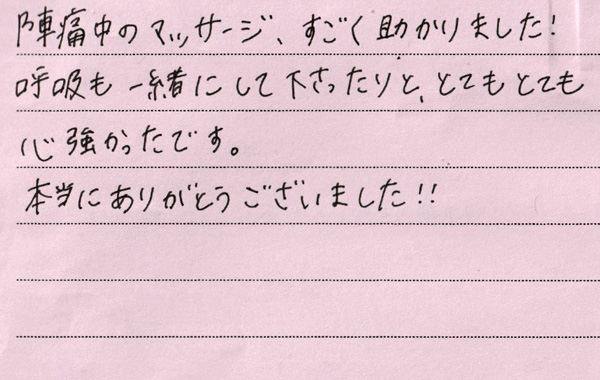 陣痛中のマッサージ、すごく助かりました!
呼吸も一緒にして下さったりと、とてもとても
心強かったです。
本当にありがとうございました!!